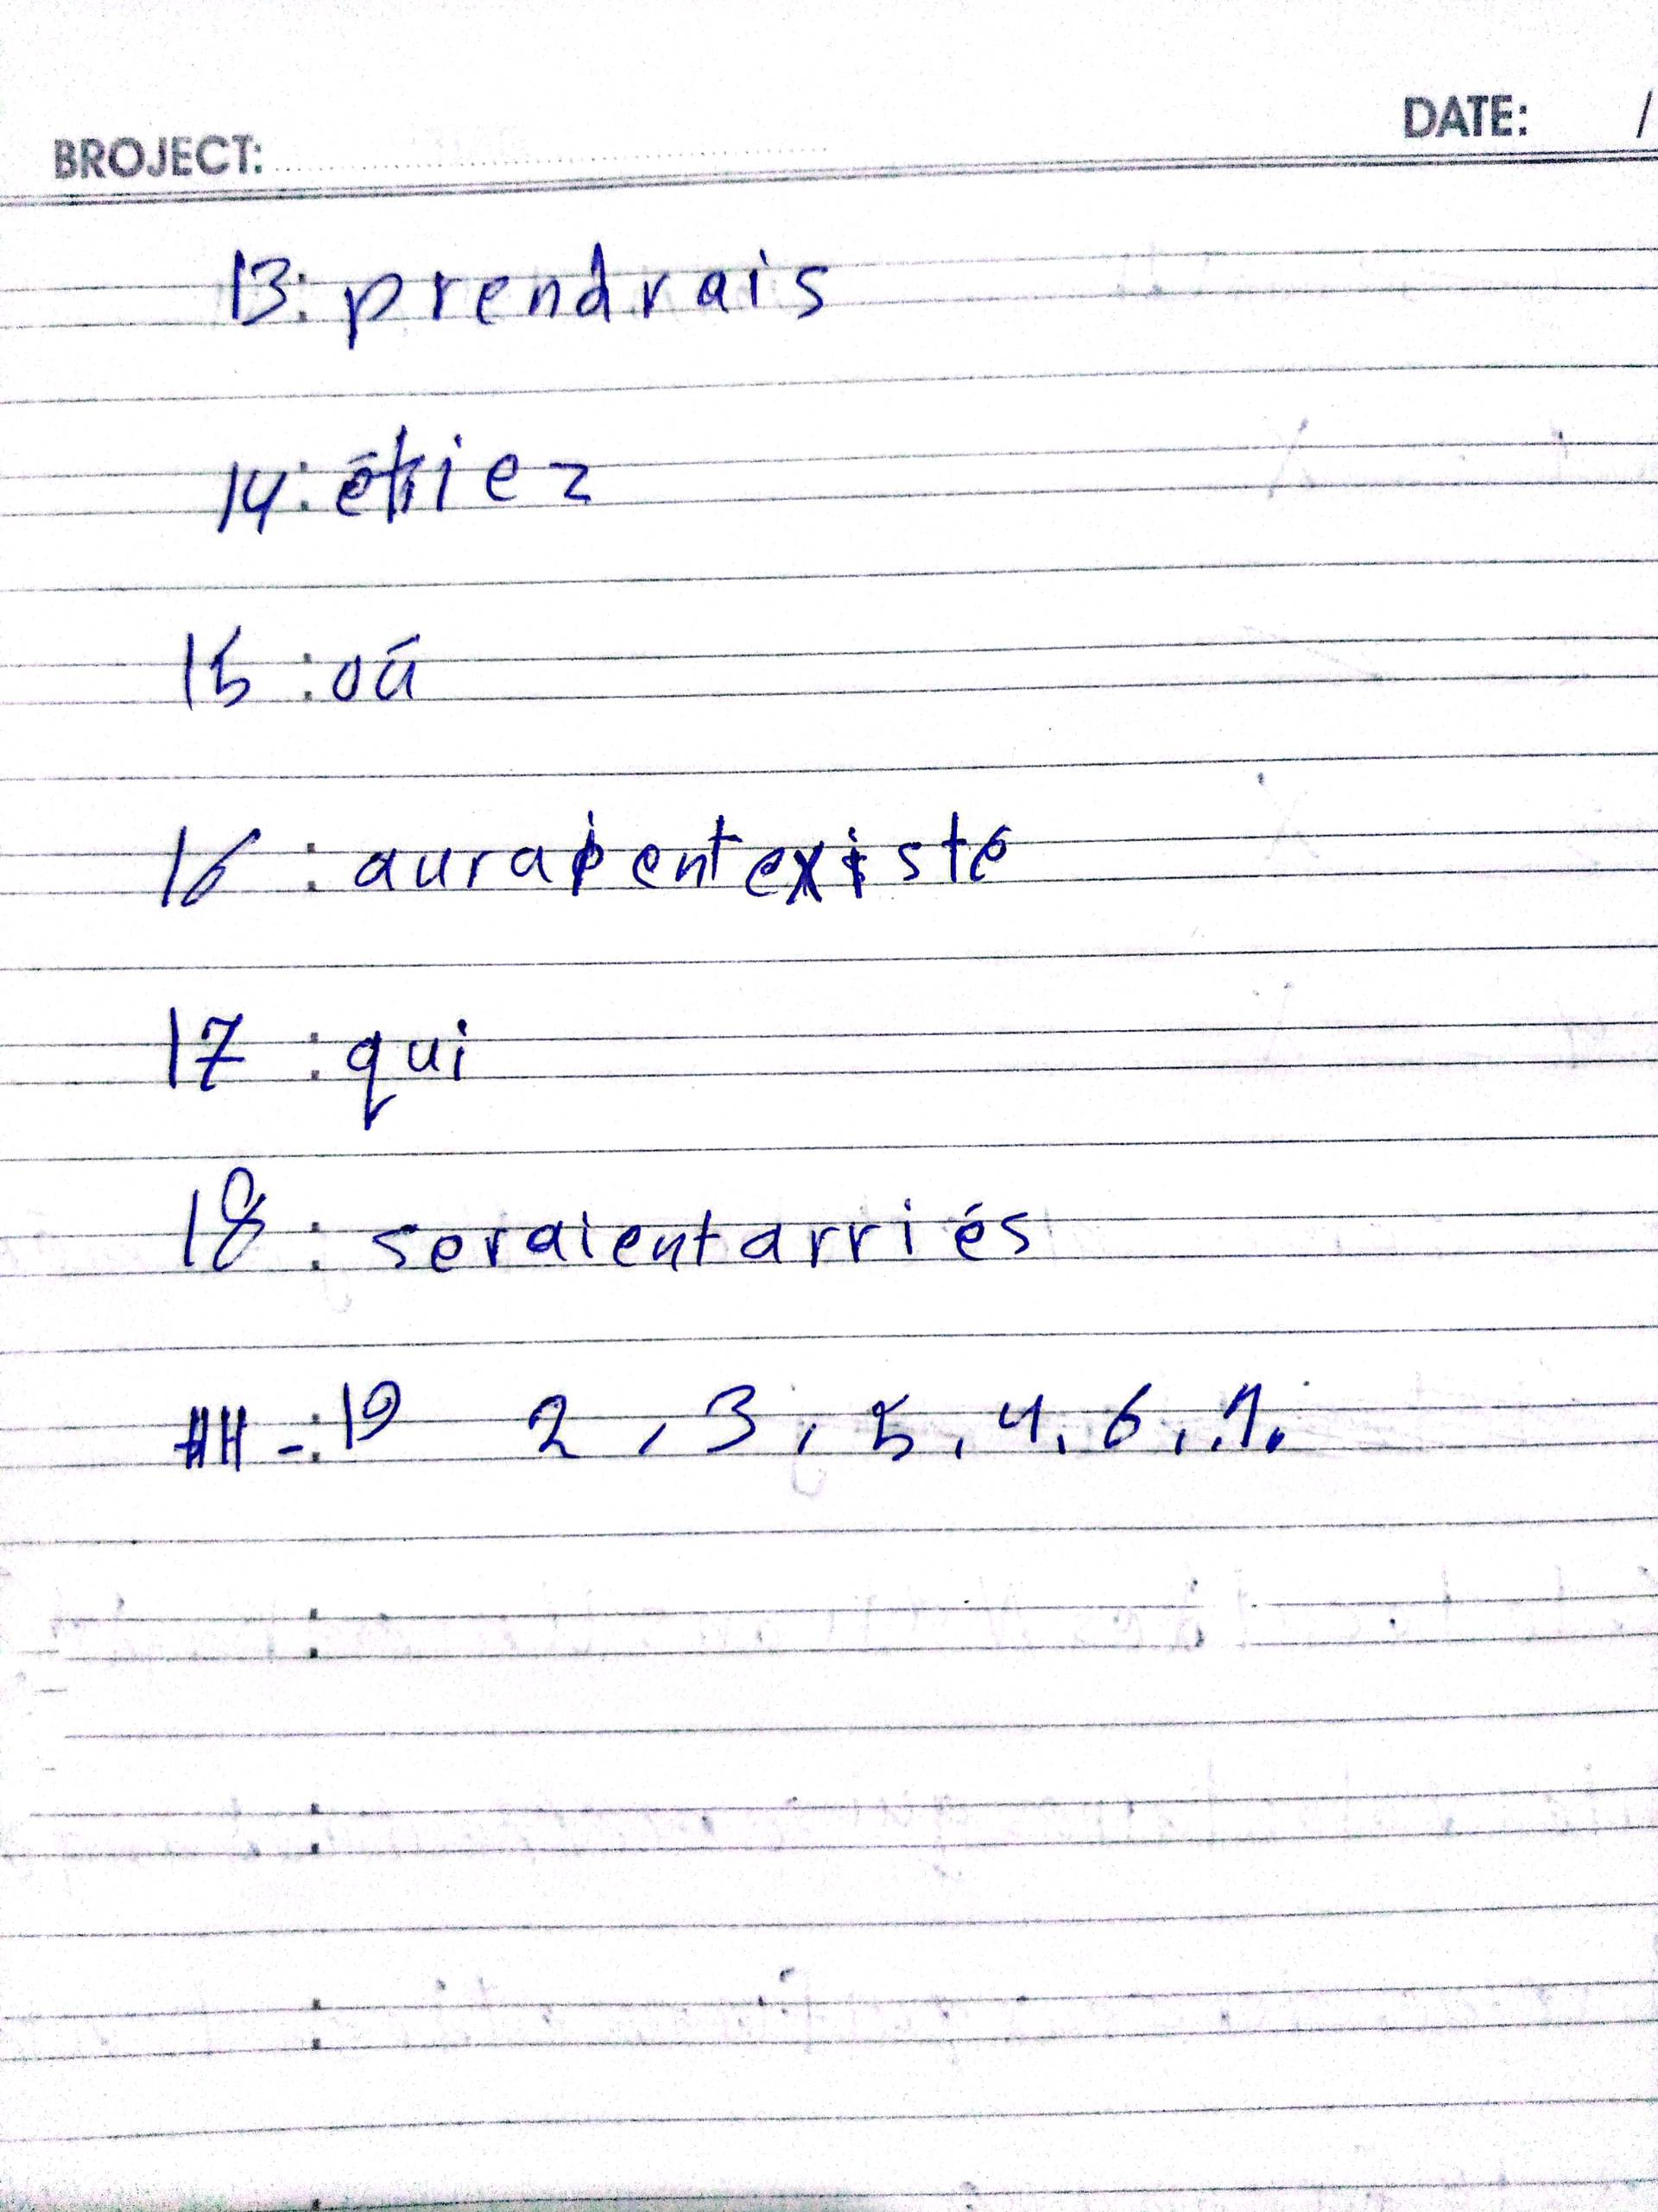 BROJECT:
DATE: /
13: prendrais
14: étiez
15: oú
16: auraient existé
17: qui
18: seraient arriés
## -: 19 2, 3, 5, 4, 6, 1.